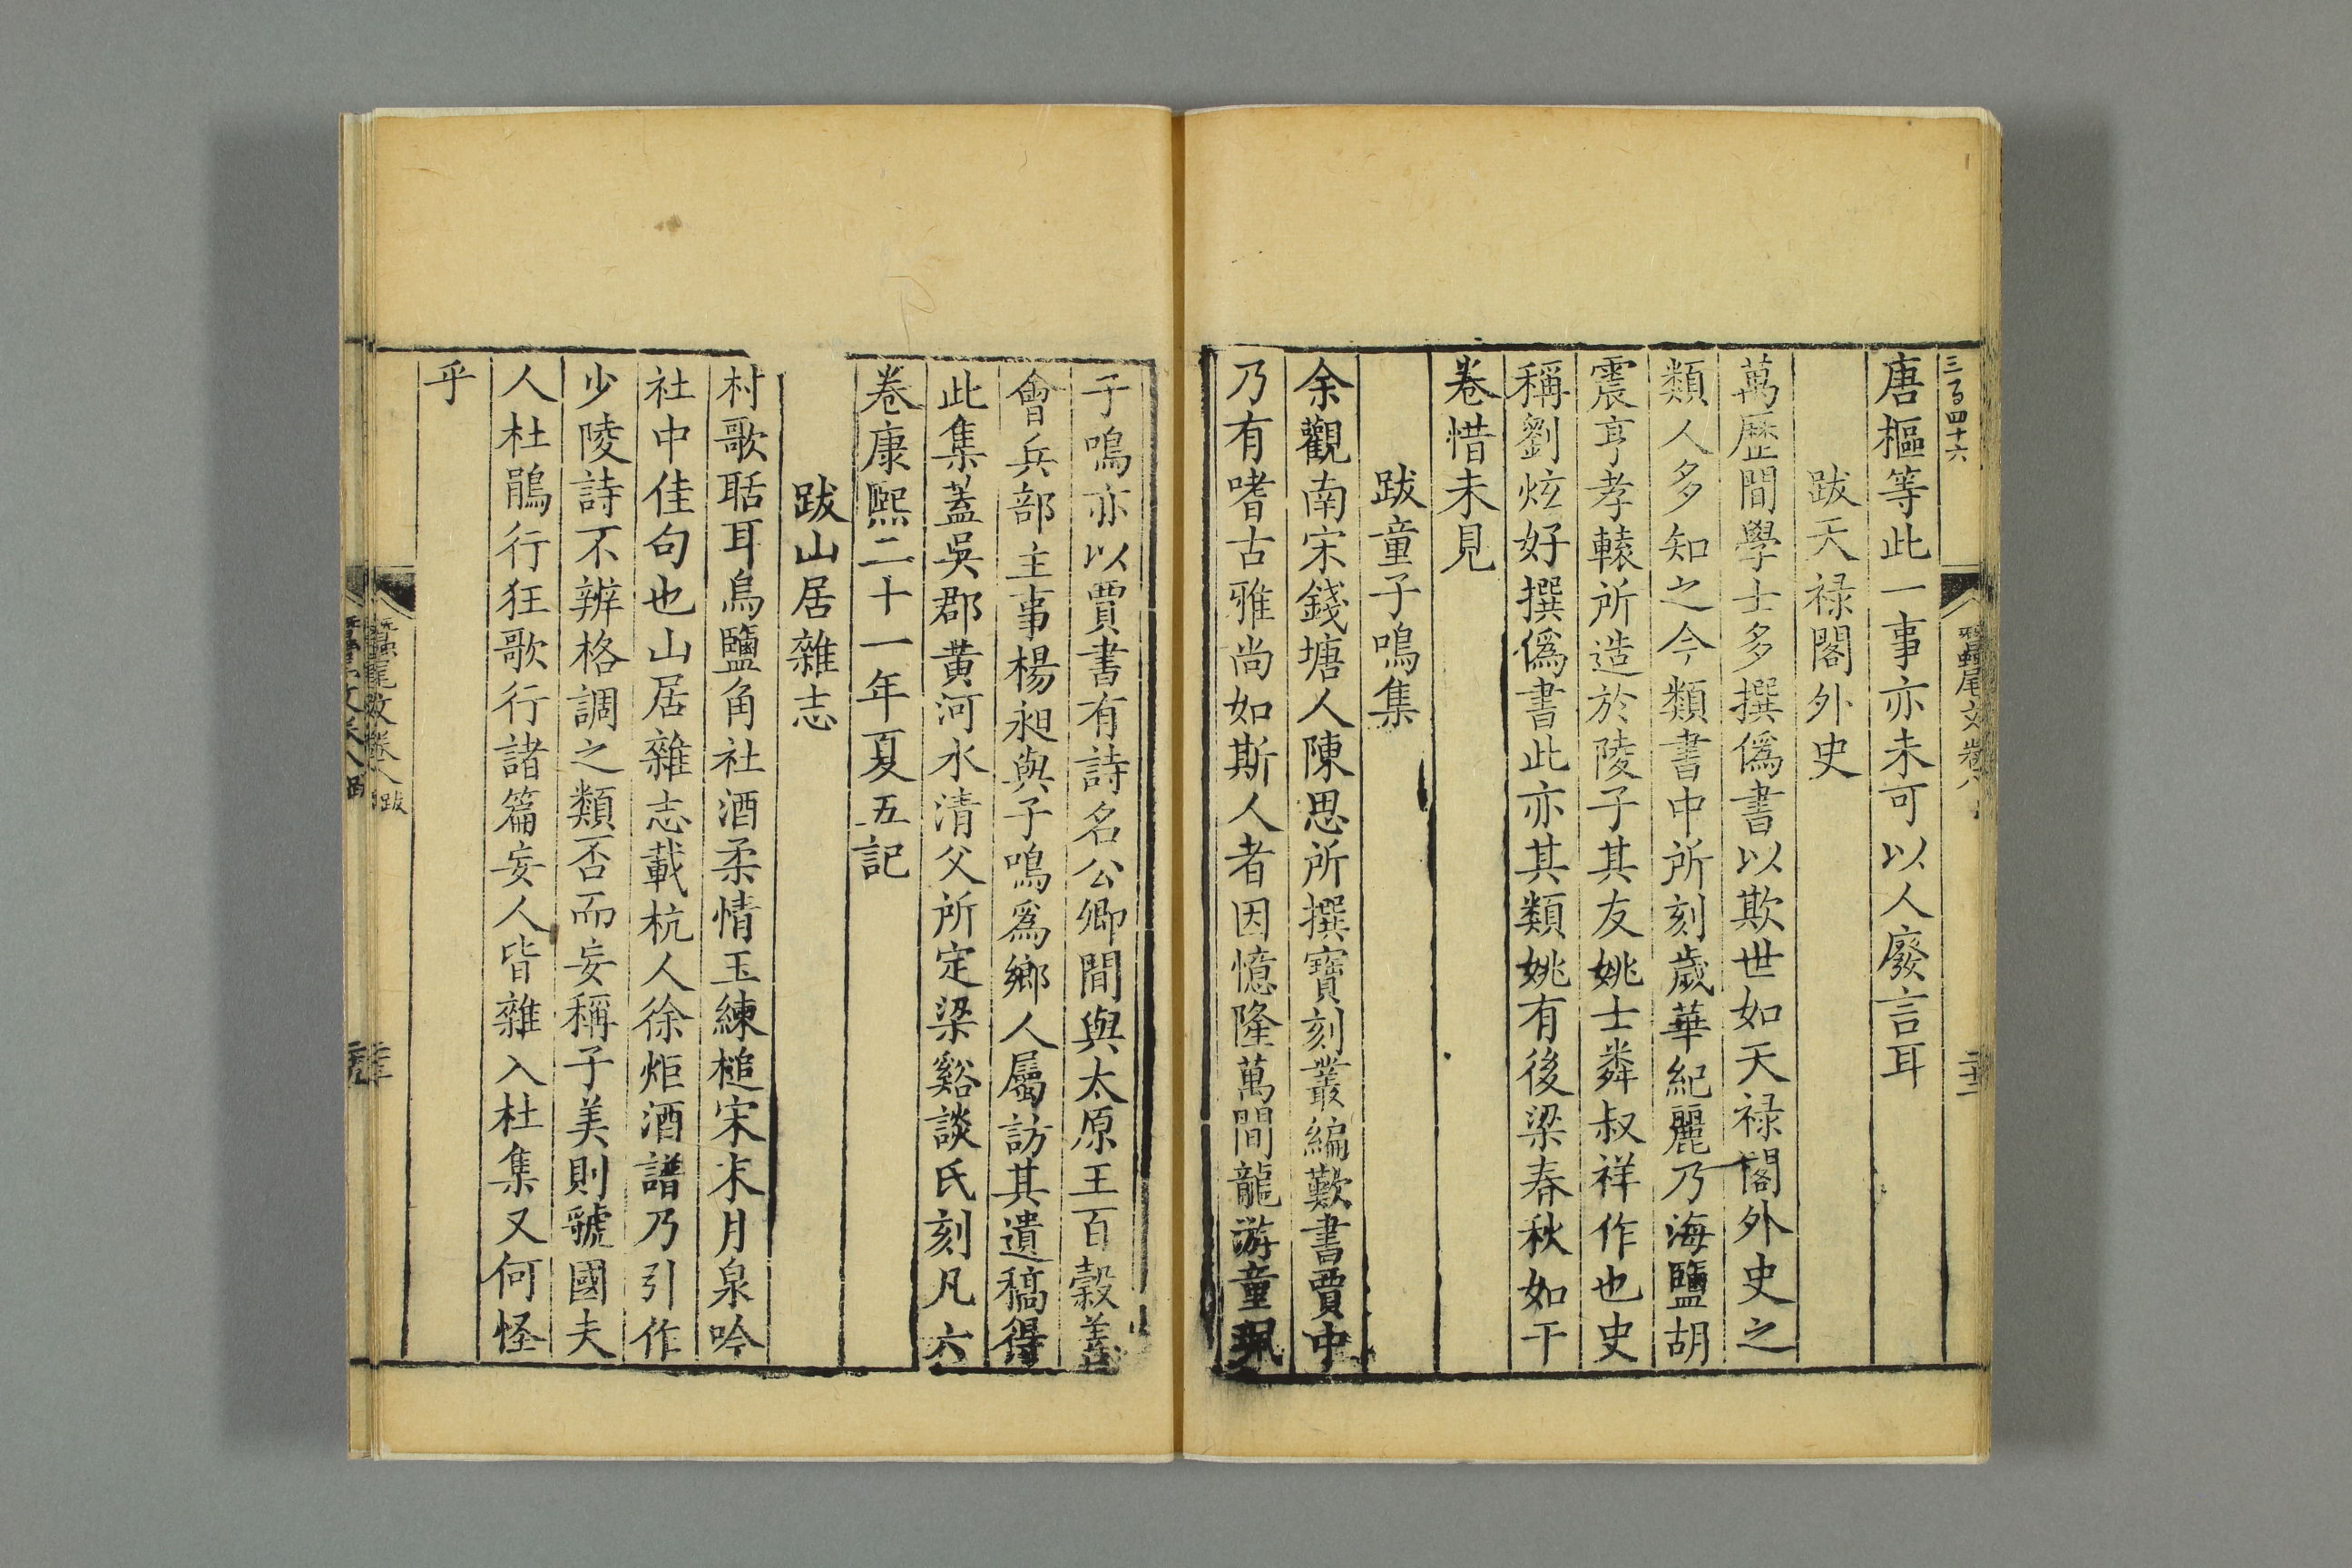 唐樞等此一事亦未可以人廢言耳
跋天禄閣外史
萬歷間學士多撰僞書以欺世如天禄閣外史之
類人多知之今類書中所刻歲華紀麗乃海鹽胡
震亨孝轅所造於陵子其友姚士粦叔祥作也史
稱劉炫好撰僞書此亦其類姚有後梁春秋如干
卷惜未見
跋童子鳴集
余觀南宋錢塘人陳思所撰寶刻叢編歎書賈中
乃有嗜古雅尚如斯人者因憶隆萬間龍游童珮
子鳴亦以賈書有詩名公卿間與太原王百穀善
會兵部主事楊昶與子鳴爲鄉人屬訪其遺稿得
此集蓋吳郡黄河水清父所定梁谿談氏刻凡六
卷康熙二十一年夏五記
跋山居雜志
村歌聒耳烏鹽角社酒柔情玉練槌宋末月泉吟
社中佳句也山居雜志載杭人徐炬酒譜乃引作
少陵詩不辨格調之類否而妄稱子美則虢國夫
人杜鵑行狂歌行諸篇妄人皆雜入杜集又何怪
乎
蠶尾文卷八 跋